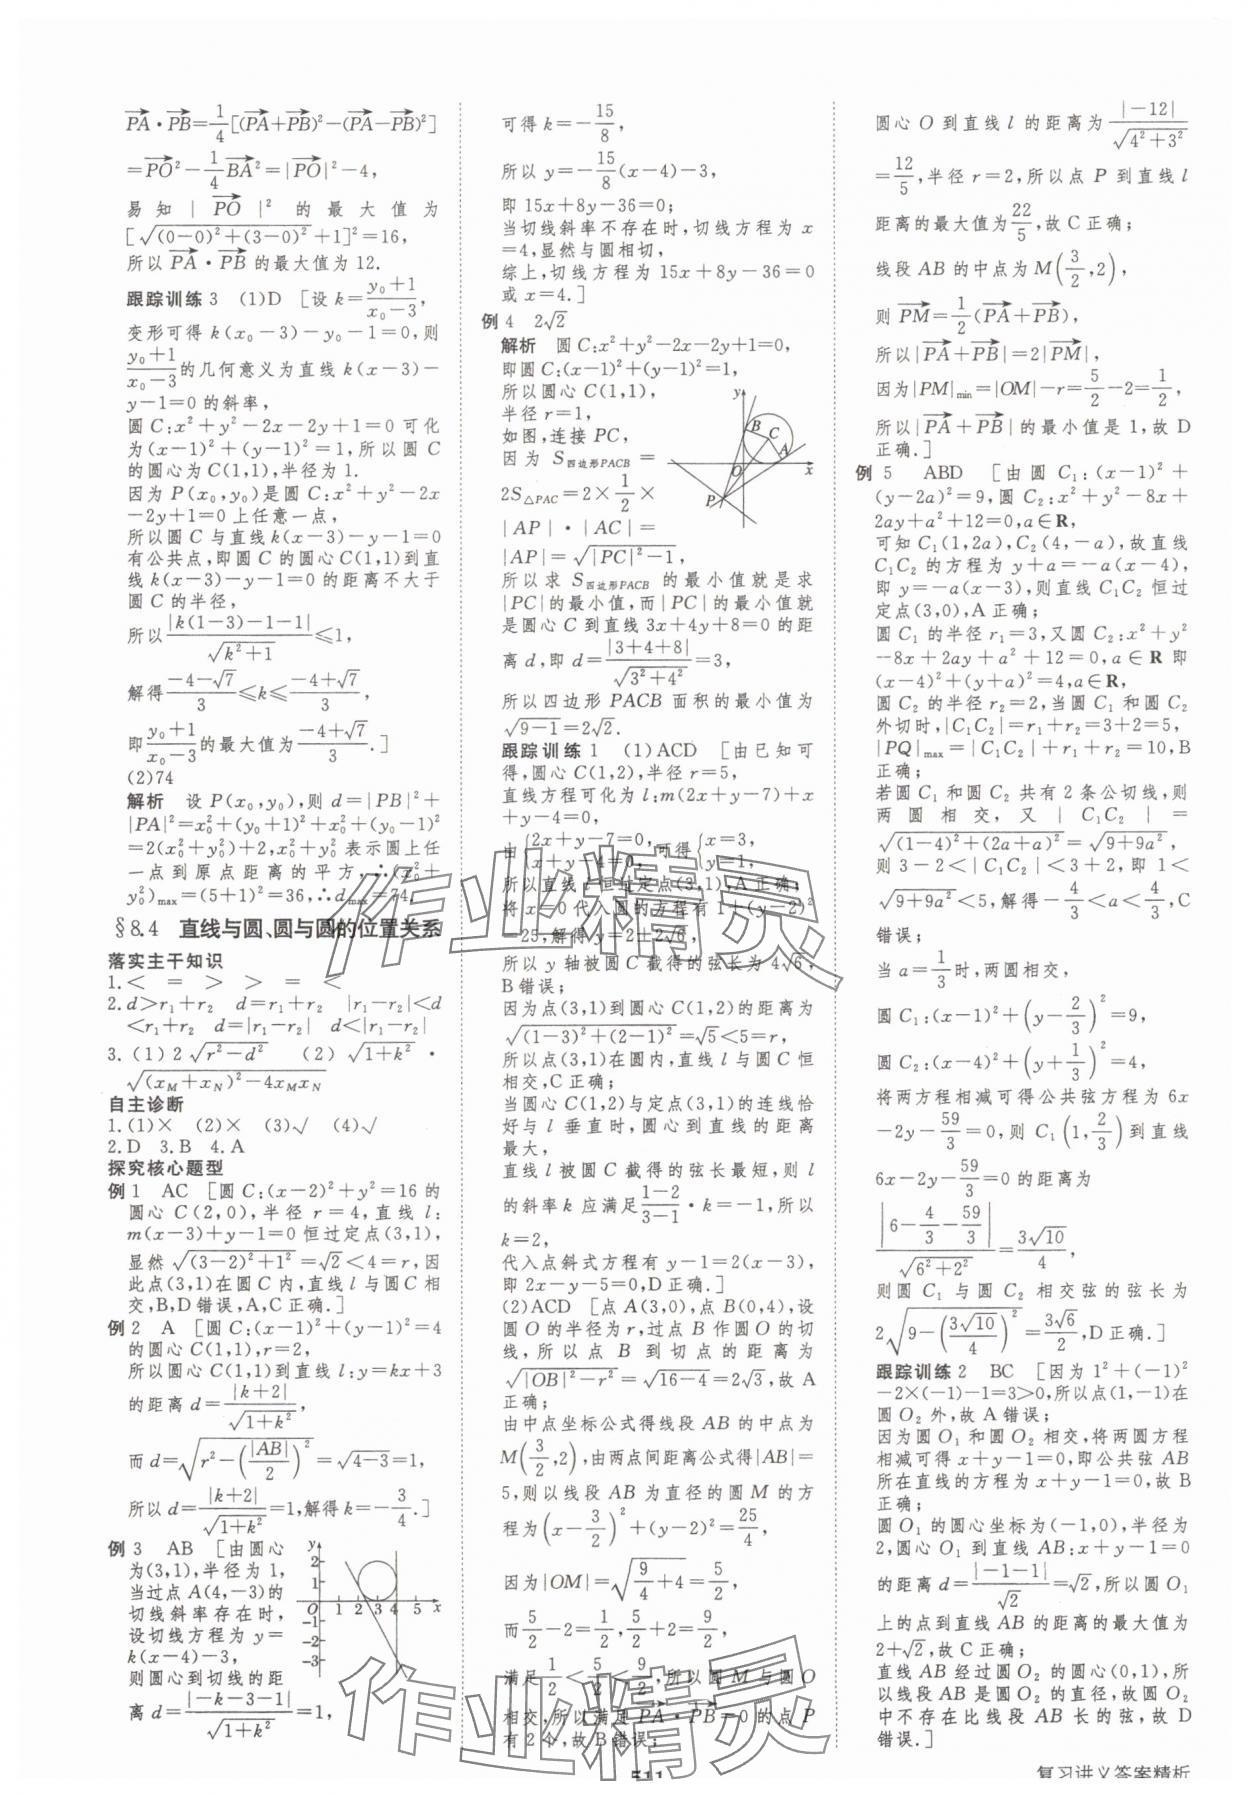 $\overrightarrow{PA}\cdot\overrightarrow{PB}=\frac{1}{4}[(\overrightarrow{PA}+\overrightarrow{PB})^2-(\overrightarrow{PA}-\overrightarrow{PB})^2]$
$=\overrightarrow{PO}^2-\frac{1}{4}\overrightarrow{BA}^2=|\overrightarrow{PO}|^2-4,$
易知 $|\overrightarrow{PO}|^2$ 的最大值为
$[\sqrt{(0-0)^2+(3-0)^2}+1]^2=16,$
所以 $\overrightarrow{PA}\cdot\overrightarrow{PB}$ 的最大值为 12.
跟踪训练 3 (1)D [设 $k=\frac{y_0+1}{x_0-3}$,
变形可得 $k(x_0-3)-y_0-1=0$,则
$\frac{y_0+1}{x_0-3}$的几何意义为直线 $k(x-3)-$
$y-1=0$ 的斜率,
圆 $C:x^2+y^2-2x-2y+1=0$ 可化
为$(x-1)^2+(y-1)^2=1$,所以圆 C
的圆心为 C(1,1),半径为 1.
因为 $P(x_0,y_0)$是圆 $C:x^2+y^2-2x$
$-2y+1=0$ 上任意一点,
所以圆 C 与直线 $k(x-3)-y-1=0$
有公共点,即圆 C 的圆心 C(1,1)到直
线 $k(x-3)-y-1=0$ 的距离不大于
圆 C 的半径,
所以$\frac{|k(1-3)-1-1|}{\sqrt{k^2+1}}\le 1$,
解得$\frac{-4-\sqrt{7}}{3}\le k\le\frac{-4+\sqrt{7}}{3}$,
即$\frac{y_0+1}{x_0-3}$的最大值为$\frac{-4+\sqrt{7}}{3}$.]
(2)74
解析 设 $P(x_0,y_0)$,则 $d=|PB|^2+$
$|PA|^2=x_0^2+(y_0+1)^2+x_0^2+(y_0-1)^2$
$=2(x_0^2+y_0^2)+2,x_0^2+y_0^2$ 表示圆上任
一点到原点距离的平方,∴$(x_0^2+$
$y_0^2)_{max}=(5+1)^2=36$,∴$d_{max}=74$.
§8.4 直线与圆、圆与圆的位置关系
落实主干知识
1.< = > > = <
2.$d>r_1+r_2$ $d=r_1+r_2$ $|r_1-r_2|<d$
$<r_1+r_2$ $d=|r_1-r_2|$ $d<|r_1-r_2|$
3.(1)$2\sqrt{r^2-d^2}$ (2)$\sqrt{1+k^2}\cdot$
$\sqrt{(x_M+x_N)^2-4x_Mx_N}$
自主诊断
1.(1)× (2)× (3)√ (4)√
2.D 3.B 4.A
探究核心题型
例 1 AC [圆 $C:(x-2)^2+y^2=16$ 的
圆心 C(2,0),半径 $r=4$,直线 l:
$m(x-3)+y-1=0$ 恒过定点(3,1),
显然 $\sqrt{(3-2)^2+1^2}=\sqrt{2}<4=r$,因
此点(3,1)在圆 C 内,直线 l 与圆 C 相
交,B,D 错误,A,C 正确.]
例 2 A [圆 $C:(x-1)^2+(y-1)^2=4$
的圆心 C(1,1),$r=2$,
所以圆心 C(1,1)到直线 $l:y=kx+3$
的距离 $d=\frac{|k+2|}{\sqrt{1+k^2}}$,
而 $d=\sqrt{r^2-\left(\frac{|AB|}{2}\right)^2}=\sqrt{4-3}=1$,
所以 $d=\frac{|k+2|}{\sqrt{1+k^2}}=1$,解得 $k=-\frac{3}{4}$.]
例 3 AB [由圆心
为(3,1),半径为 1,
当过点 A(4,-3)的
切线斜率存在时,
设切线方程为 $y=$
$k(x-4)-3$,
则圆心到切线的距
离 $d=\frac{|-k-3-1|}{\sqrt{1+k^2}}=1$,
y
2
1
O 1 2 3 4 5 x
-1
-2
-3
可得 $k=-\frac{15}{8}$,
所以 $y=-\frac{15}{8}(x-4)-3$,
即 $15x+8y-36=0$;
当切线斜率不存在时,切线方程为 x
=4,显然与圆相切,
综上,切线方程为 $15x+8y-36=0$
或 $x=4$.]
例 4 $2\sqrt{2}$
解析 圆 $C:x^2+y^2-2x-2y+1=0$,
即圆 $C:(x-1)^2+(y-1)^2=1$,
所以圆心 C(1,1),
半径 $r=1$,
如图,连接 PC,
因为 $S_{四边形PACB}=$
$2S_{△PAC}=2\times\frac{1}{2}\times$
$|AP|\cdot|AC|=$
$|AP|=\sqrt{|PC|^2-1}$,
y
B
C
A
O
x
P
所以求 $S_{四边形PACB}$ 的最小值就是求
|PC|的最小值,而|PC|的最小值就
是圆心 C 到直线 $3x+4y+8=0$ 的距
离 d,即 $d=\frac{|3+4+8|}{\sqrt{3^2+4^2}}=3$,
所以四边形 PACB 面积的最小值为
$\sqrt{9-1}=2\sqrt{2}$.
跟踪训练 1 (1)ACD [由已知可
得,圆心 C(1,2),半径 $r=5$,
直线方程可化为 $l:m(2x+y-7)+x$
$+y-4=0$,
由$\begin{cases}2x+y-7=0,\\x+y-4=0,\end{cases}$可得$\begin{cases}x=3,\\y=1,\end{cases}$
所以直线 l 恒过定点(3,1),A 正确;
将 $x=0$ 代入圆的方程有 $1+(y-2)^2$
$=25$,解得 $y=2\pm2\sqrt{6}$,
所以 y 轴被圆 C 截得的弦长为 $4\sqrt{6}$,
B 错误;
因为点(3,1)到圆心 C(1,2)的距离为
$\sqrt{(1-3)^2+(2-1)^2}=\sqrt{5}<5=r$,
所以点(3,1)在圆内,直线 l 与圆 C 恒
相交,C 正确;
当圆心 C(1,2)与定点(3,1)的连线恰
好与 l 垂直时,圆心到直线的距离
最大,
直线 l 被圆 C 截得的弦长最短,则 l
的斜率 k 应满足$\frac{1-2}{3-1}\cdot k=-1$,所以
$k=2$,
代入点斜式方程有 $y-1=2(x-3)$,
即 $2x-y-5=0$,D 正确.]
(2)ACD [点 A(3,0),点 B(0,4),设
圆 O 的半径为 r,过点 B 作圆 O 的切
线,所以点 B 到切点的距离为
$\sqrt{|OB|^2-r^2}=\sqrt{16-4}=2\sqrt{3}$,故 A
正确;
由中点坐标公式得线段 AB 的中点为
$M\left(\frac{3}{2},2\right)$,由两点间距离公式得|AB|=
5,则以线段 AB 为直径的圆 M 的方
程为$\left(x-\frac{3}{2}\right)^2+(y-2)^2=\frac{25}{4}$,
因为 $|OM|=\sqrt{\frac{9}{4}+4}=\frac{5}{2}$,
而$\frac{5}{2}-2=\frac{1}{2},\frac{5}{2}+2=\frac{9}{2}$,
满足$\frac{1}{2}<\frac{5}{2}<\frac{9}{2}$,所以圆 M 与圆 O
相交,所以满足$\overrightarrow{PA}\cdot\overrightarrow{PB}=0$ 的点 P
有 2 个,故 B 错误;
圆心 O 到直线 l 的距离为$\frac{|-12|}{\sqrt{4^2+3^2}}$
$=\frac{12}{5}$,半径 $r=2$,所以点 P 到直线 l
距离的最大值为$\frac{22}{5}$,故 C 正确;
线段 AB 的中点为 $M\left(\frac{3}{2},2\right)$,
则$\overrightarrow{PM}=\frac{1}{2}(\overrightarrow{PA}+\overrightarrow{PB})$,
所以$|\overrightarrow{PA}+\overrightarrow{PB}|=2|\overrightarrow{PM}|$,
因为$|PM|_{min}=|OM|-r=\frac{5}{2}-2=\frac{1}{2}$,
所以$|\overrightarrow{PA}+\overrightarrow{PB}|$的最小值是 1,故 D
正确.]
例 5 ABD [由圆 $C_1:(x-1)^2+$
$(y-2a)^2=9$,圆 $C_2:x^2+y^2-8x+$
$2ay+a^2+12=0,a\in\mathbf{R}$,
可知 $C_1(1,2a),C_2(4,-a)$,故直线
$C_1C_2$ 的方程为 $y+a=-a(x-4)$,
即 $y=-a(x-3)$,则直线 $C_1C_2$ 恒过
定点(3,0),A 正确;
圆 $C_1$ 的半径 $r_1=3$,又圆 $C_2:x^2+y^2$
$-8x+2ay+a^2+12=0,a\in\mathbf{R}$ 即
$(x-4)^2+(y+a)^2=4,a\in\mathbf{R}$,
圆 $C_2$ 的半径 $r_2=2$,当圆 $C_1$ 和圆 $C_2$
外切时,$|C_1C_2|=r_1+r_2=3+2=5$,
$|PQ|_{max}=|C_1C_2|+r_1+r_2=10$,B
正确;
若圆 $C_1$ 和圆 $C_2$ 共有 2 条公切线,则
两圆相交,又 $|C_1C_2|=$
$\sqrt{(1-4)^2+(2a+a)^2}=\sqrt{9+9a^2}$,
则 $3-2<|C_1C_2|<3+2$,即 $1<$
$\sqrt{9+9a^2}<5$,解得$-\frac{4}{3}<a<\frac{4}{3}$,C
错误;
当 $a=\frac{1}{3}$时,两圆相交,
圆 $C_1:(x-1)^2+\left(y-\frac{2}{3}\right)^2=9$,
圆 $C_2:(x-4)^2+\left(y+\frac{1}{3}\right)^2=4$,
将两方程相减可得公共弦方程为 6x
$-2y-\frac{59}{3}=0$,则 $C_1\left(1,\frac{2}{3}\right)$到直线
$6x-2y-\frac{59}{3}=0$ 的距离为
$\frac{\left|6-\frac{4}{3}-\frac{59}{3}\right|}{\sqrt{6^2+2^2}}=\frac{3\sqrt{10}}{4}$,
则圆 $C_1$ 与圆 $C_2$ 相交弦的弦长为
$2\sqrt{9-\left(\frac{3\sqrt{10}}{4}\right)^2}=\frac{3\sqrt{6}}{2}$,D 正确.]
跟踪训练 2 BC [因为 $1^2+(-1)^2$
$-2\times(-1)-1=3>0$,所以点(1,-1)在
圆 $O_2$ 外,故 A 错误;
因为圆 $O_1$ 和圆 $O_2$ 相交,将两圆方程
相减可得 $x+y-1=0$,即公共弦 AB
所在直线的方程为 $x+y-1=0$,故 B
正确;
圆 $O_1$ 的圆心坐标为(-1,0),半径为
2,圆心 $O_1$ 到直线 $AB:x+y-1=0$
的距离 $d=\frac{|-1-1|}{\sqrt{2}}=\sqrt{2}$,所以圆 $O_1$
上的点到直线 AB 的距离的最大值为
$2+\sqrt{2}$,故 C 正确;
直线 AB 经过圆 $O_2$ 的圆心(0,1),所
以线段 AB 是圆 $O_2$ 的直径,故圆 $O_2$
中不存在比线段 AB 长的弦,故 D
错误.]
作业精灵
作业精灵
511
复习讲义答案精析